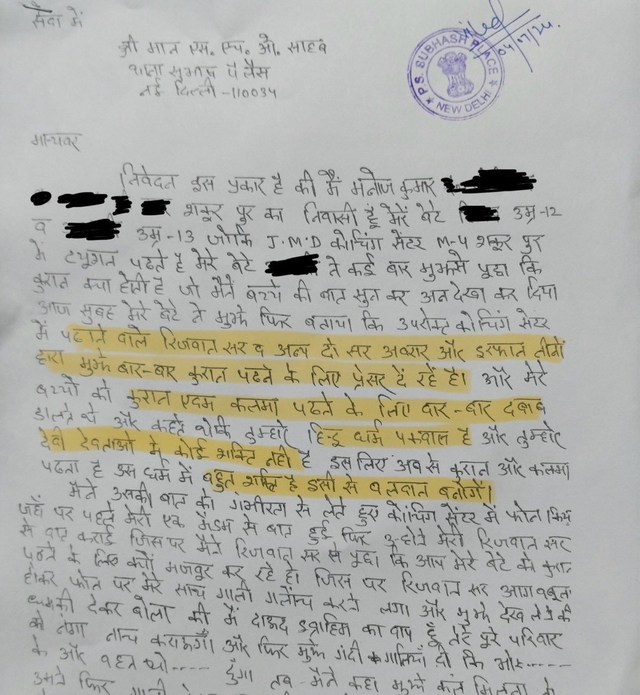 सेवा में
श्री मान एस. एच. ओ. साहब
थाना सुभाष पैलेस
नई दिल्ली -110034
P.S. SUBHASH PLACE
★ NEW DELHI ★
मान्यवर
निवेदन इस प्रकार है की मैं मनोज कुमार
शकूर पुर का निवासी हूँ मेरे बेटे उम्र-12
व उम्र-13 जोकि J.M.D कोचिंग सेंटर M-4 शकूर पुर
में ट्यूशन पढते है मेरे बेटे ने कई बार मुझसे पूछा कि
कुरान क्या होती है जो मैने बच्चे की बात सुन कर अनदेखा कर दिया
आज सुबह मेरे बेटे ने मुझे फिर बताया कि उपरोक्त कोचिंग सेंटर
में पढाने वाले रिजवान सर व अन्य दो सर अबरार और इरफान तीनों
द्वारा मुझे बार-बार कुरान पढने के लिए प्रेसर दे रहे है। और मेरे
बच्चो को कुरान एवम कलमा पढने के लिए बार-बार दबाव
डालते थे और कहते थेकि तुम्हारे हिन्दू धर्म बकवास है और तुम्हारे
देवी देवताओं में कोई शक्ति नही है इस लिए अब से कुरान और कलमा
पढता है इस धर्म में बहुत शक्ति है इसी से बलवान बनोगे।
मैने उसकी बात को गंभीरता से लेते हुए कोचिंग सेंटर में फोन किया
जहाँ पर पहले मेरी एक मैडम से बात हुई फिर उन्होंने मेरी रिजवान सर
से बात कराई जिस पर मैने रिजवान सर से पूछा कि आप मेरे बेटे को कुरान
पढने के लिए क्यों मजबूर कर रहे हो जिस पर रिजवान सर आगबबूला
होकर फोन पर मेरे साथ गाली गलौच करने लगा और मुझे देख लेने की
धमकी देकर बोला की मैं दाऊद इब्राहिम का बाप हूँ तेरे पूरे परिवार
को नंगा नाच कराऊंगा और फिर मुझे गंदी गालियाँ दी कि
के और बहन चो----- दूंगा तब मैने कहा मुझे कब
उसने फिर